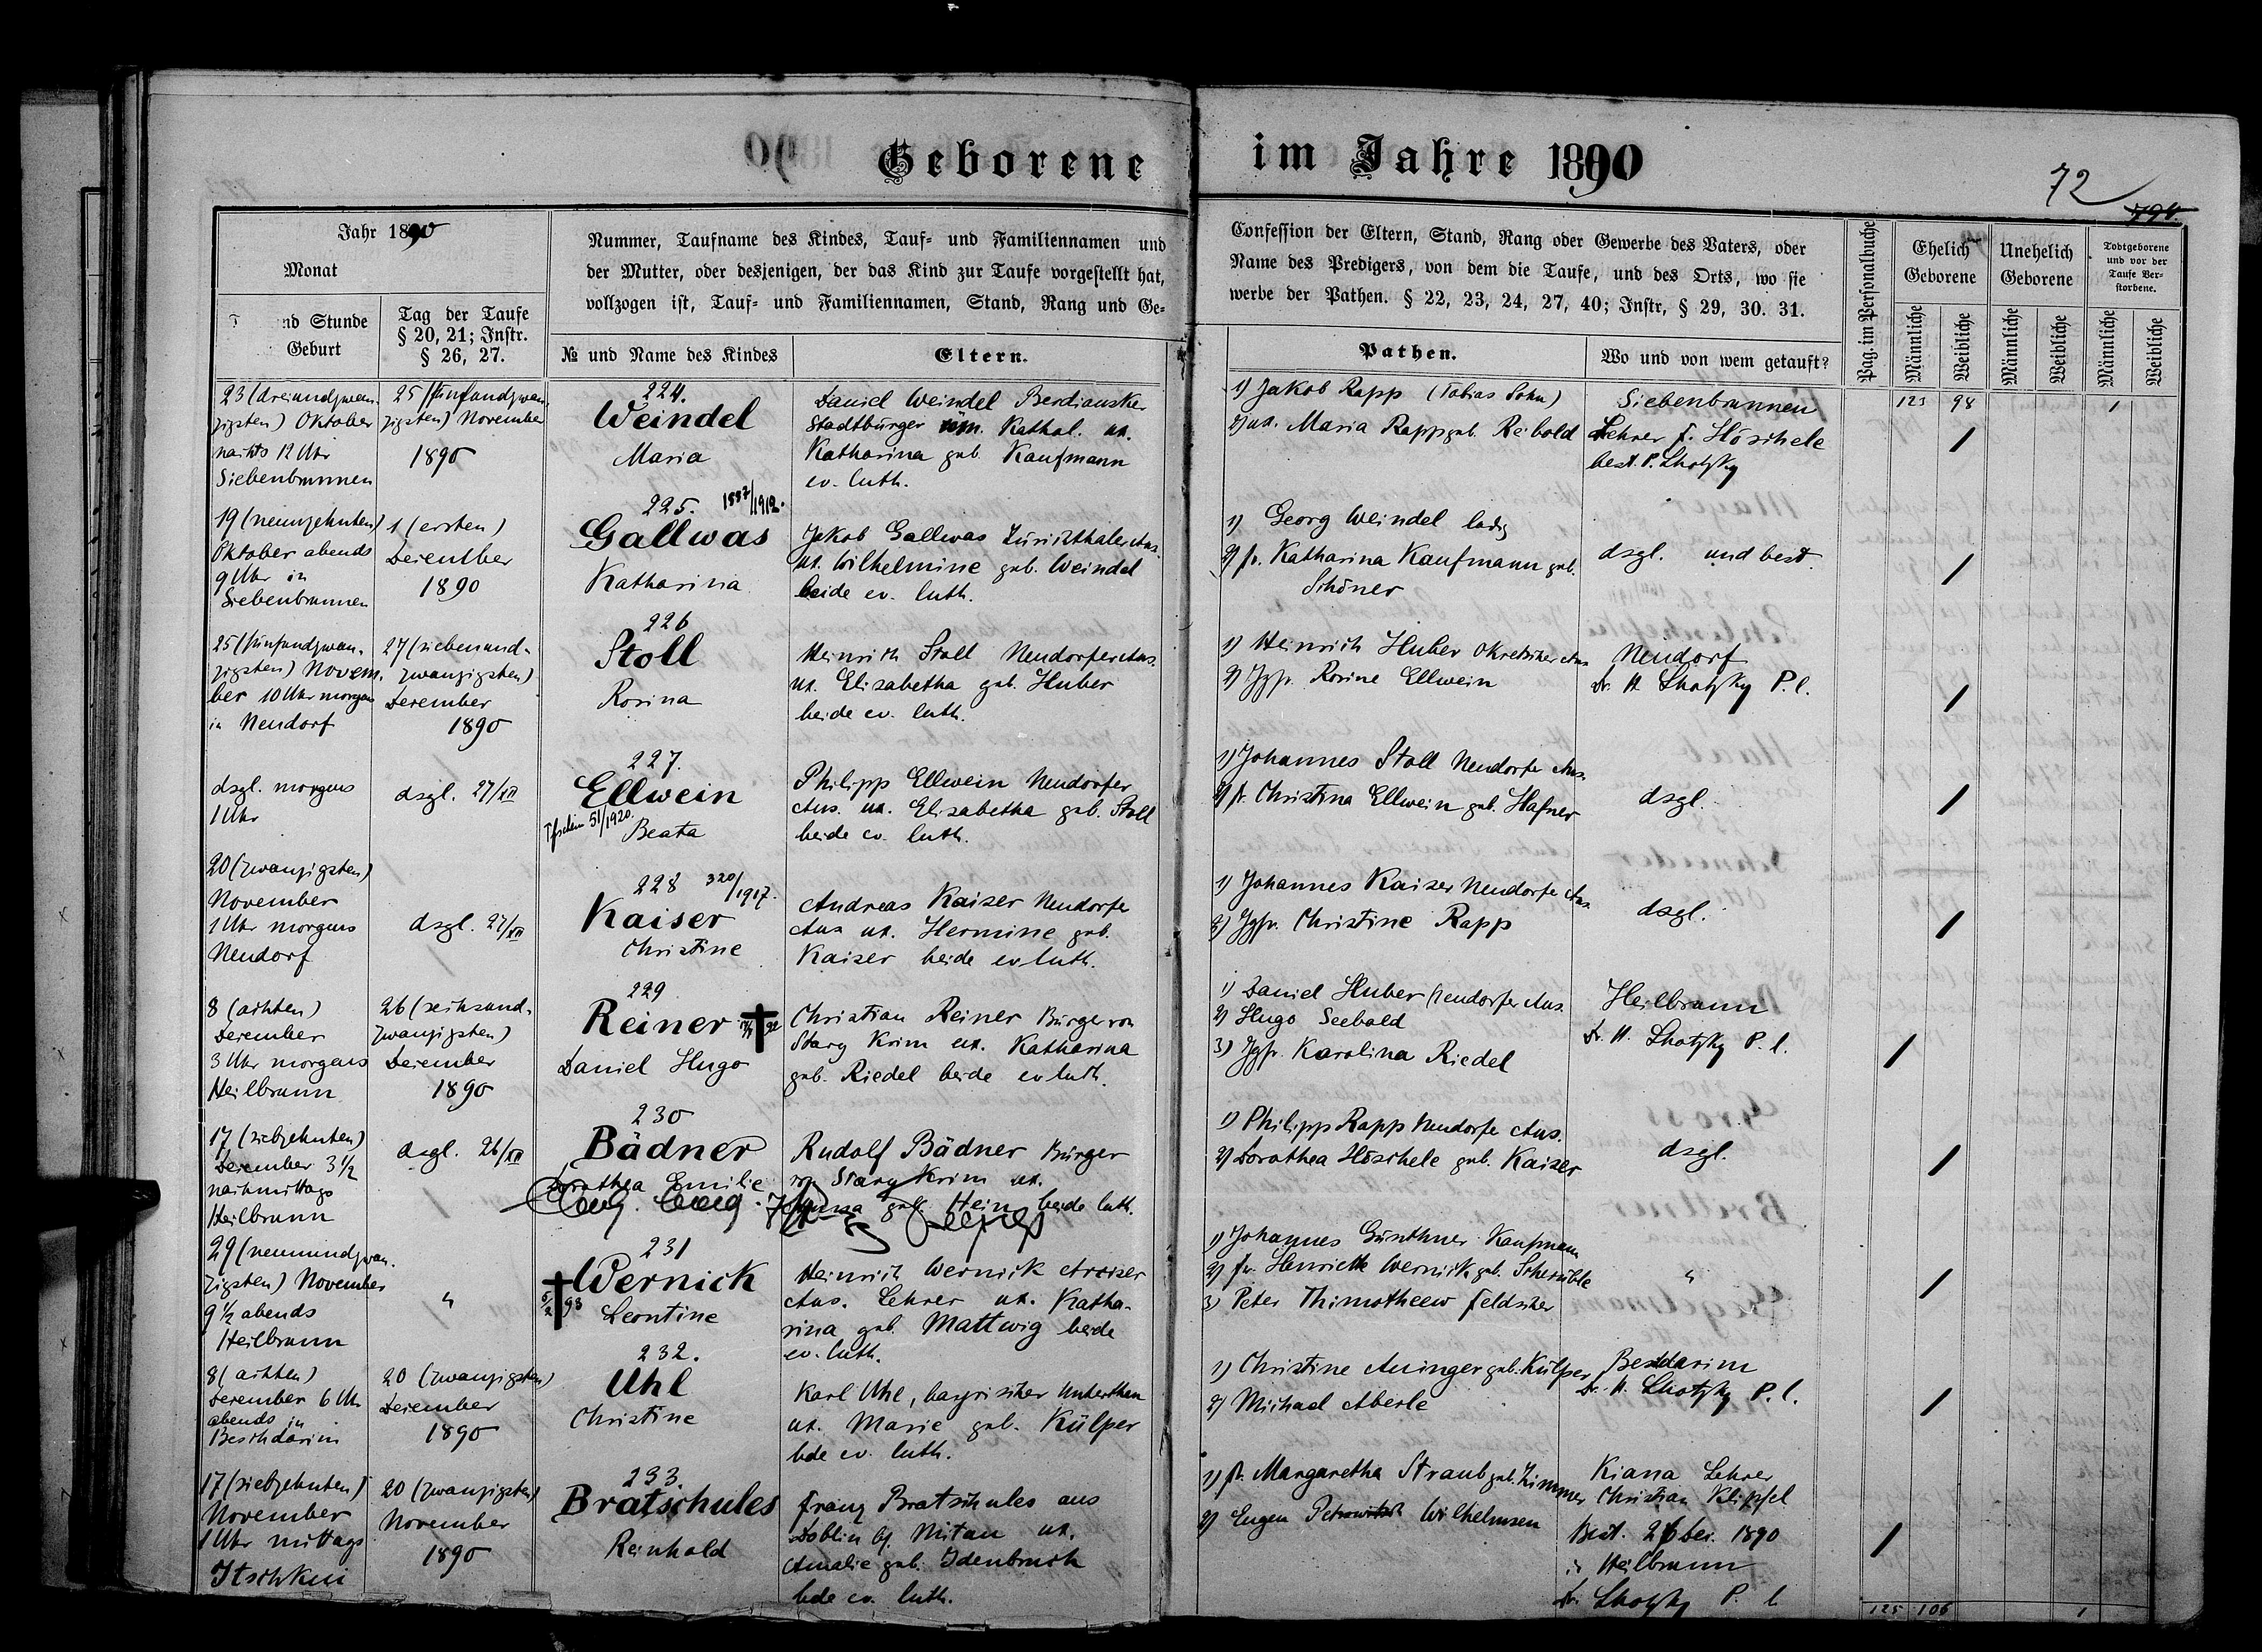 Geborene im Jahre 1890
72
Jahr 1890
Monat
nd Stunde
Geburt
Tag der Taufe
§ 20, 21; Instr.
§ 26, 27.
Nummer, Taufname des Kindes, Tauf- und Familiennamen und
der Mutter, oder desjenigen, der das Kind zur Taufe vorgestellt hat,
vollzogen ist, Tauf- und Familiennamen, Stand, Rang und Ge-
№ und Name des Kindes
Eltern.
Confession der Eltern, Stand, Rang oder Gewerbe des Vaters, oder
Name des Predigers, von dem die Taufe, und des Orts, wo sie
werbe der Pathen. § 22, 23, 24, 27, 40; Instr, § 29, 30. 31.
Pathen.
Wo und von wem getauft?
Pag. im Personalbuche
Ehelich
Geborene
Unehelich
Geborene
Todtgeborene
und vor der
Taufe Ver-
storbene.
Männliche
Weibliche
Männliche
Weibliche
Männliche
Weibliche
23 (dreiundzwan-
zigsten) Oktober
nachts 12 Uhr
Siebenbrunnen
25 (fünfundzwan-
zigsten) November
1890
224.
Weindel
Maria
Daniel Weindel Berdiansker
Stadtbürger röm. Kathol. ux.
Katharina geb. Kaufmann
ev. luth.
1) Jakob Rapp (Tobias Sohn)
2) ux. Maria Rapp geb. Reibold
Siebenbrunnen
Lehrer F. Höschele
best. P. Lhotzky
123 98
1
19 (neunzehnten)
Oktober abends
9 Uhr in
Siebenbrunnen
1 (ersten)
Dezember
1890
225. 1887/1912.
Gallwas
Katharina
Jakob Gallwas Zürichthaler Ans.
ux. Wilhelmine geb. Weindel
beide ev. luth.
1) Georg Weindel ledig
2) fr. Katharina Kaufmann geb.
Schöner
dsgl. und best.
25 (fünfundzwan-
zigsten) Novem-
ber 10 Uhr morgen
in Neudorf
27 (siebenund-
zwanzigsten)
Dezember
1890
226
Stoll
Rosina
Heinrich Stoll Neudorfer Ans.
ux. Elisabetha geb. Huber
beide ev. luth.
1) Heinrich Huber Okretscher Ans
2) Jgfr. Rosine Ellwein
Neudorf
Dr. H. Lhotzky P. l.
dsgl. morgens
1 Uhr
dsgl. 27/XII
227.
Ellwein
Tfschein 51/1920.
Beata
Philipp Ellwein Neudorfer
Ans. ux. Elisabetha geb. Stoll
beide ev. luth.
1) Johannes Stoll Neudorfer Ans.
2) fr. Christina Ellwein geb. Hafner
dsgl.
20 (zwanzigsten)
November
1 Uhr morgens
Neudorf
dsgl. 27/XII
228 320/1917.
Kaiser
Christine
Andreas Kaiser Neudorfer
Ans ux. Hermine geb.
Kaiser beide ev luth.
1) Johannes Kaiser Neudorfer Ans.
2) Jgfr. Christine Rapp
dsgl.
8 (achten)
Dezember
3 Uhr morgens
Heilbrunn
26 (sechsund-
zwanzigsten)
Dezember
1890
229
Reiner
Daniel Hugo
Christian Reiner Bürger von
Stary Krim ux. Katharina
geb. Riedel beide ev luth.
1) Daniel Huber Neudorfer Ans.
2) Hugo Seebold
3) Jgfr. Karolina Riedel
Heilbrunn
Dr. H. Lhotzky P. l.
17 (siebzehnten)
Dezember 3½
nachmittags
Heilbrunn
dsgl. 26/XII
230
Bädner
Dorothea Emilie
Rudolf Bädner Bürger
von Stary Krim ux.
geb. Hein beide luth.
1) Philipp Rapp Neudorfer Ans.
2) Dorothea Höschele geb. Kaiser
dsgl.
29 (neunundzwan-
zigsten) November
9½ abends
Heilbrunn
"
231
Wernick
5/2 93
Leontine
Heinrich Wernick
Ans. Lehrer ux. Katha-
rina geb. Mattwig beide
ev. luth.
1) Johannes Günthner Kaufmann
2) fr. Henriette Wernick geb. Scheuble
3) Peter Thimotheew Feldscher
"
8 (achten)
Dezember 6 Uhr
abends in
Beschdarim
20 (zwanzigsten)
Dezember
1890
232.
Uhl
Christine
Karl Uhl, bayrischer Unterthan
ux. Marie geb. Külper
bde ev. luth.
1) Christine Aninger geb. Külper
2) Michael Aberle
Beschdarim
Dr. H. Lhotzky P. l.
17 (siebzehnten)
November
1 Uhr mittags
Itschkui
20 (zwanzigsten)
November
1890
233.
Bratschules
Reinhold
Franz Bratschules aus
Doblin bj. Mitau ux.
Amalie geb. Idenbruch
bde ev. luth.
1) fr. Margaretha Straub geb. Zimmer
2) Eugen Petrowitsch Wilhelmsen
Kiana Lehrer
Christian Klipfel
Best. 26 ber. 1890
in Heilbrunn
Dr. Lhotzky P. l
125 106
1